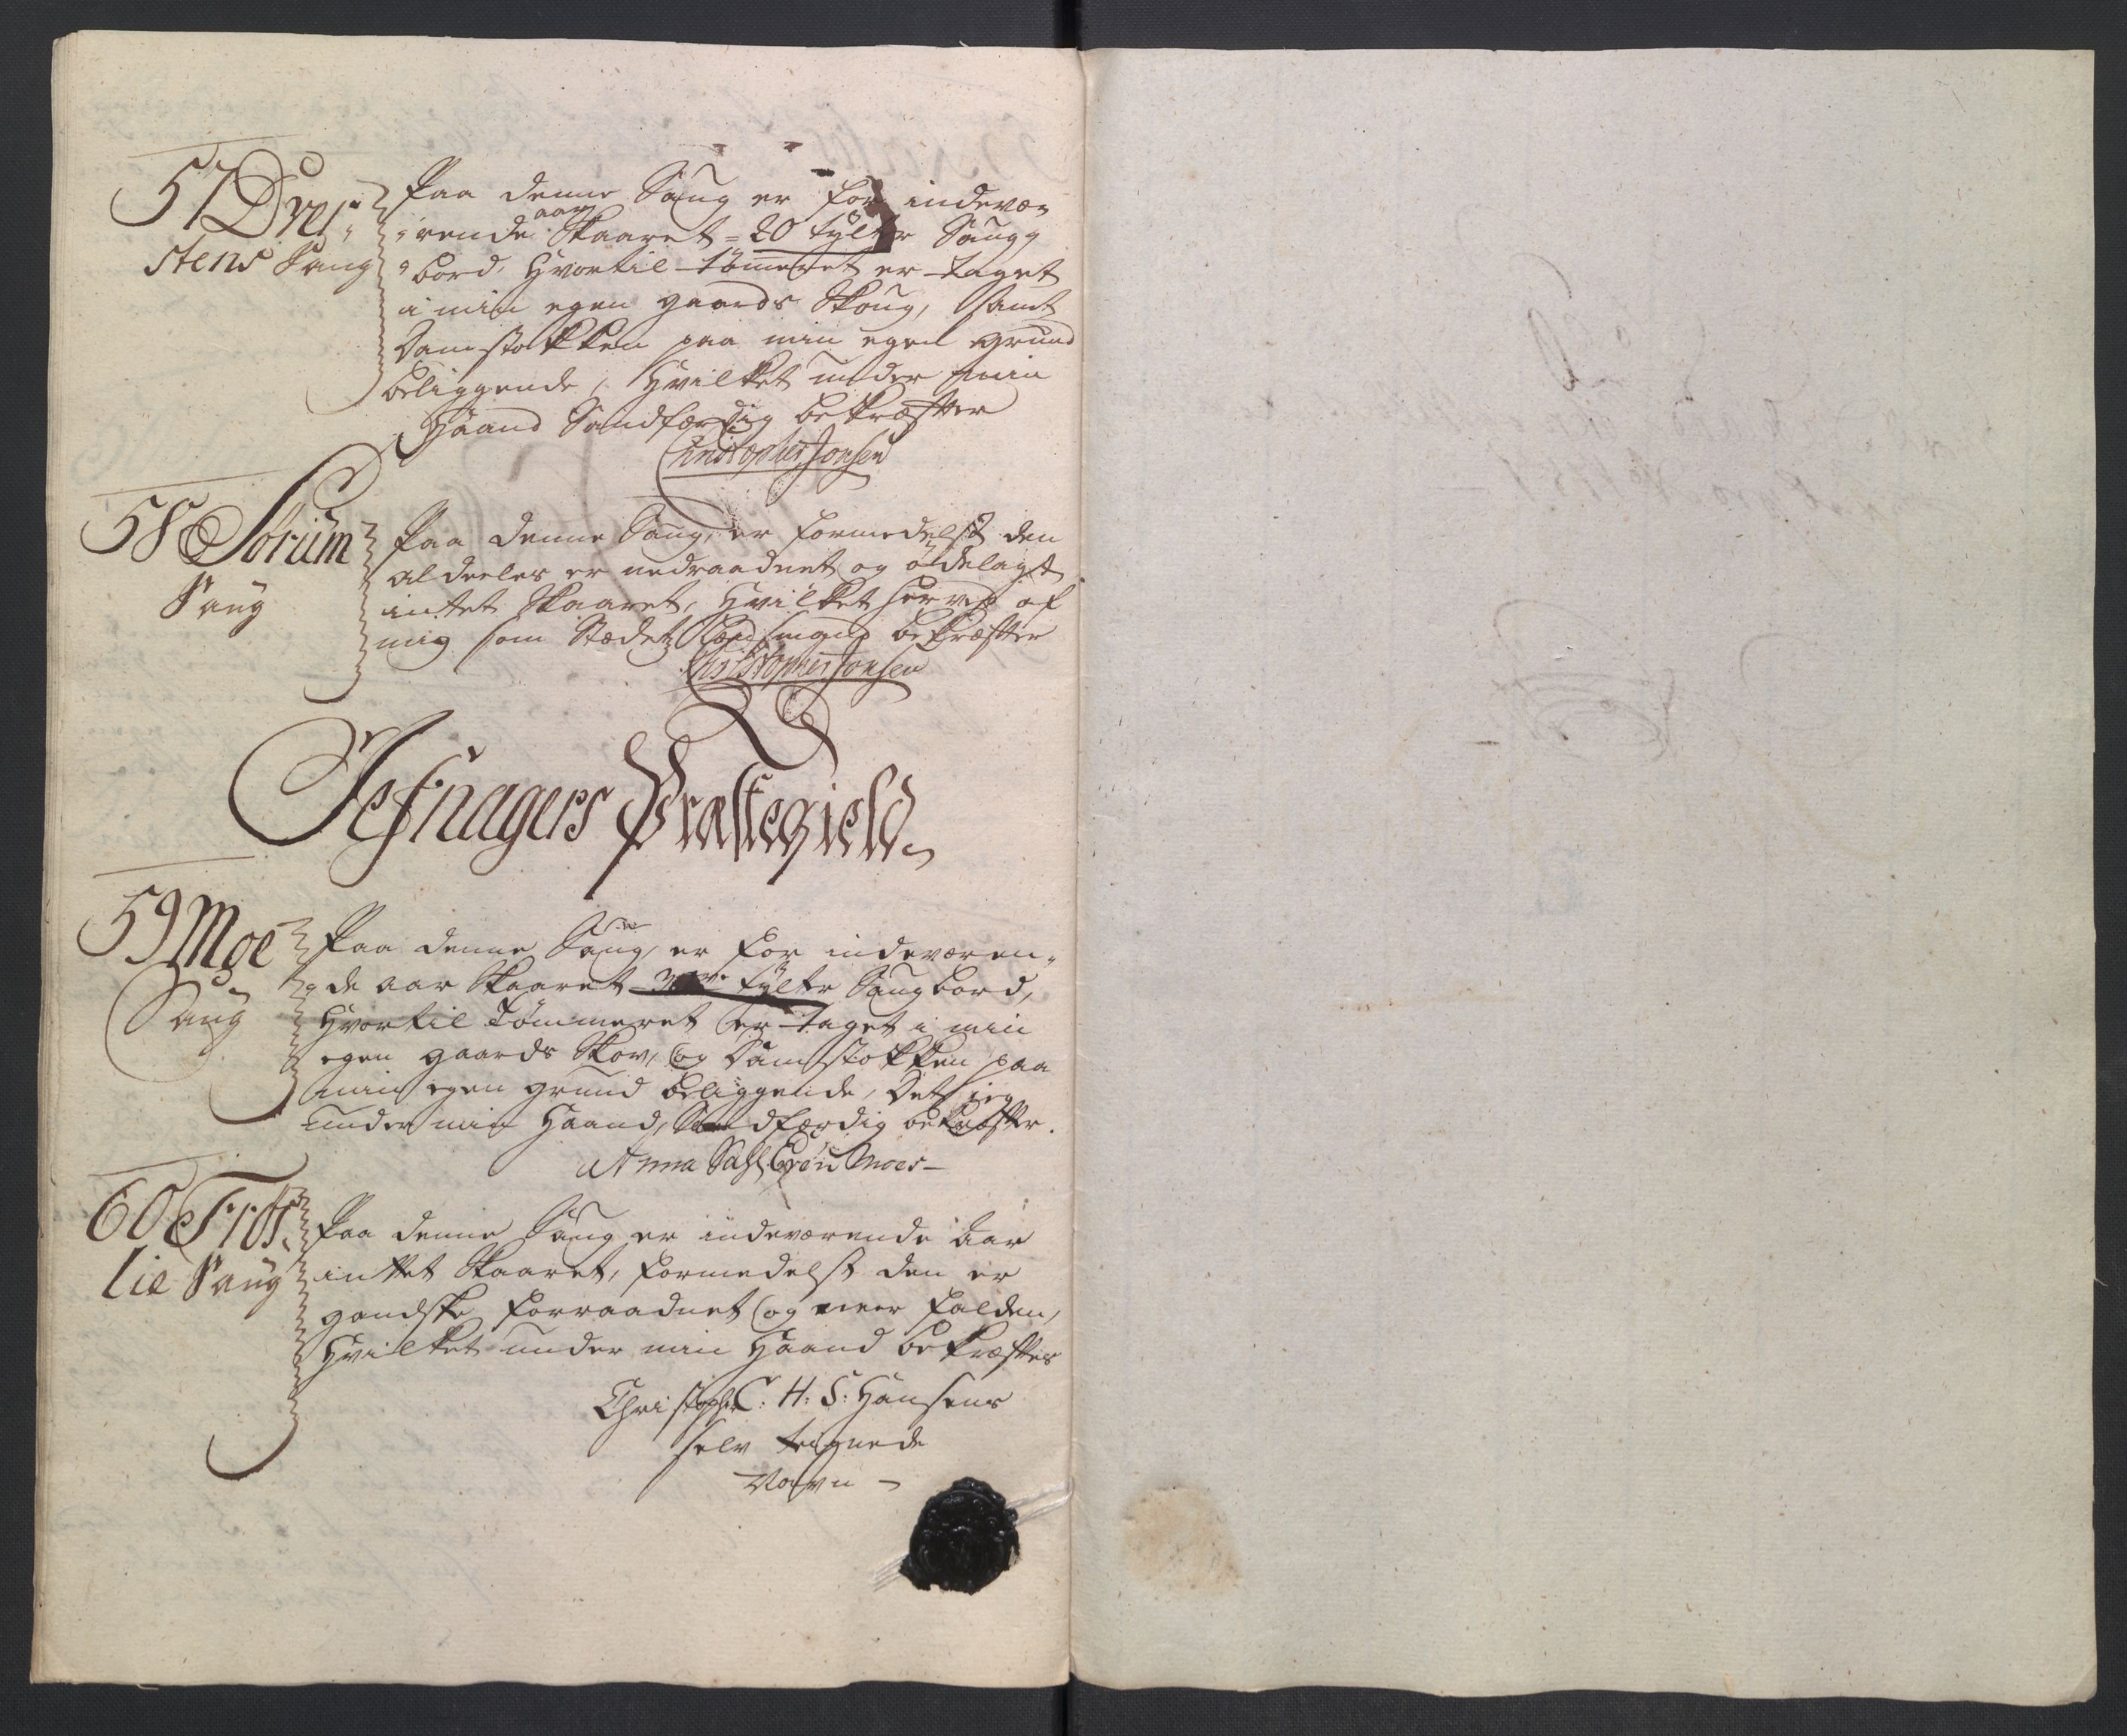 57 Drel-
stens Saug
Paa denne Saug er for indevæ-
rende aar Skaaret = 20 tylter Saug
bord, Hvortil tømeret er taget
i min egen gaards Skoug, samt
Damstokken paa min egen grund
beliggende, Hvilket under min
Haand Sandfærdig bekræfter
Christopher Jonsen
58 Sørum
Saug
Paa denne Saug, er formedelst den
aldeeles er nedraadnet og ødelagt
intet Skaaret, Hvilket herved af
mig som Stædets bekræfter
Christopher Jonsen
Jefnagers Præstegield
59 Moe
Saug
Paa denne Saug er for indeværen-
de aar Skaaret tylter Saugbord,
Hvortil Tømmeret er taget i min
egen gaards Skov, og Damstokken paa
min egen grund beliggende, Det jeg
under min Haand, Sandfærdig bekræfter.
Anna Sahl Moes
60
lie Saug
Paa denne Saug er indeværende Aar
inttet Skaaret, formedelst den er
gandske forraadnet og neer falden,
Hvilket under min Haand bekræftes
Christopher C: H: S: Hansens
selv teignede
Navn